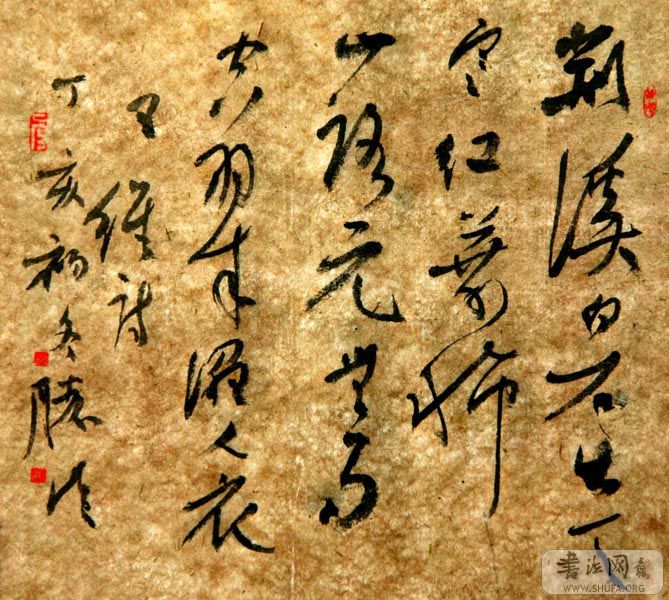 荆溪白石出天
寒紅葉稀
山路元無雨
空翠濕人衣
王維詩
丁亥初冬
書法网
WWW.SHUFA.ORG